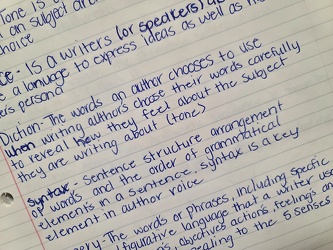 Tone is
an subject are
choice
ce - Is a writers (or speakers)
e a language to express ideas as well as
ers persona
Diction - The words an author chooses to use
when writing authors choose their words carefully
to reveal how they feel about the subject
they are writing about (tone)
syntax - sentence structure arrangement
of words and the order of grammatical
elements in a sentence, syntax is a key
element in author voice
ery - The words or phrases, including specific
figurative language that a writer use
as objectives actions, feelings
ealing to the 5 senses